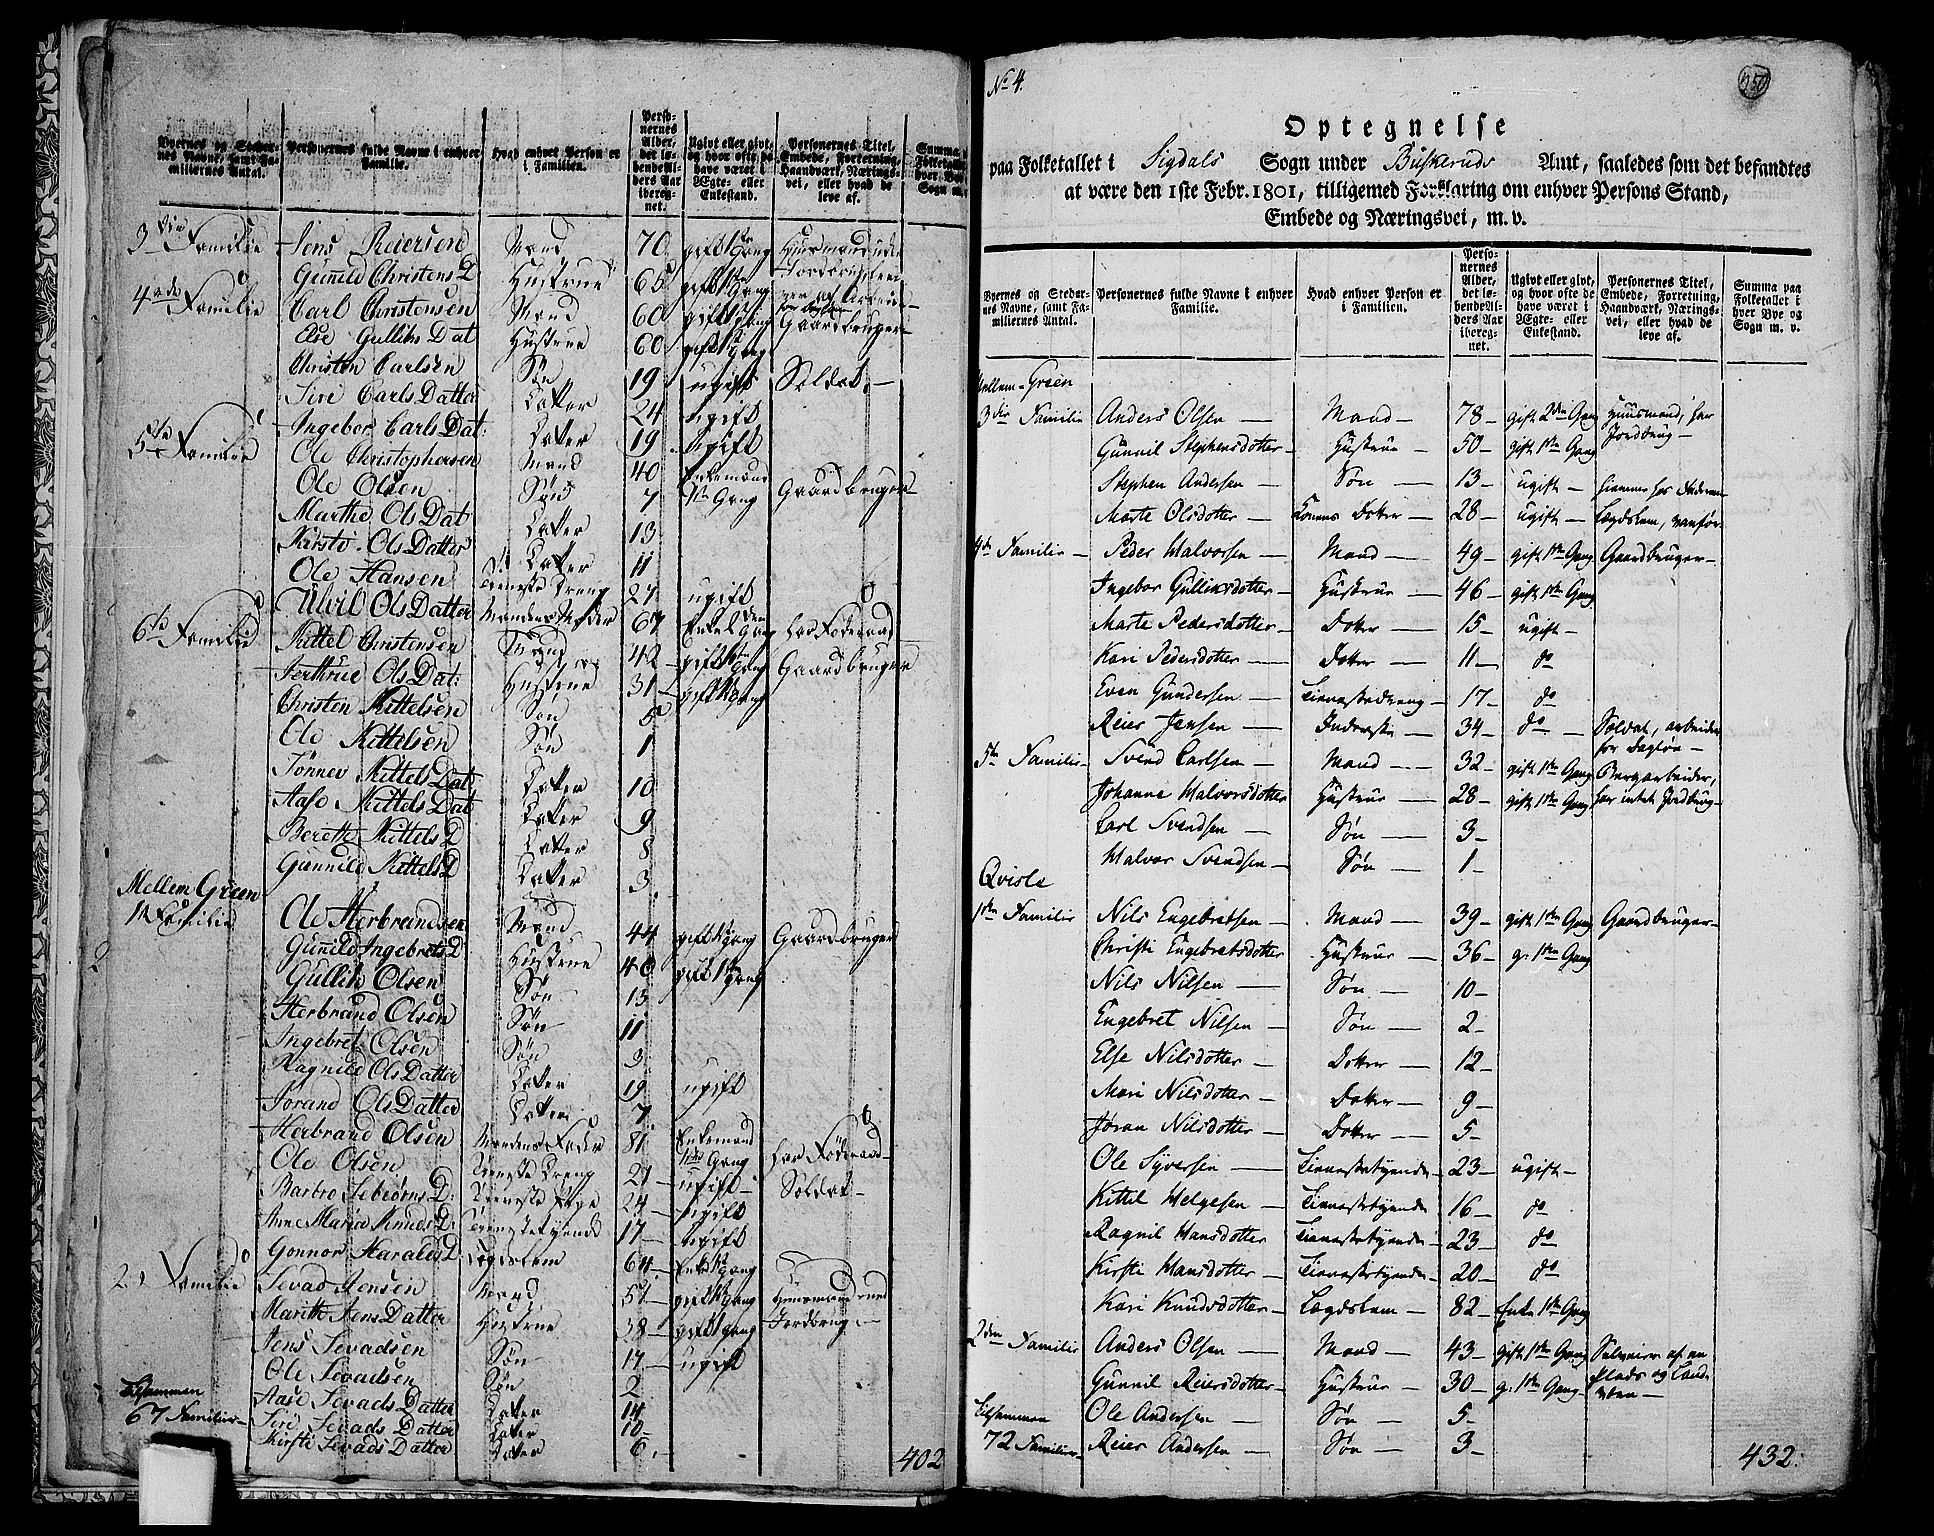 Byernes og Steder-
nes Navne, samt Fa-
miliernes Antal.
Personernes fulde Navne i enhver
Familie.
Hvad enhver Person er
i Familien.
Perso-
nernes
Alder,
det le-
bende Al-
ders Aar
iberegnet.
Ugivt eller givt,
og hvor ofte de
have været i
Ægte- eller
Enkestand.
Personernes Titel,
Embede, Forretning,
Haandværk, Nærings-
vei, eller hvad de
leve af.
Summa
Folketallet
hver Bye
Sogn m.
3die Familie Jens Reiersen Mand 70 gift 1te Gang
Gunild Christens D Hustrue
4de Familie Carl Christensen Mand 60 gift
Else Gulliks Dat Hustrue 60 gift 1te Gang Gaardbruger
Christen Carlsen Søn 19 ugift Soldat
Siri Carls Datter Datter 24 ugift
Ingebor Carls Dat: Datter 19 ugift
5te Familie Ole Christophersen Mand 40 Enkemand
Ole Olsen Søn 7 1te Gang Gaardbruger
Marthe Ols Dat Datter 13
Kirsti Ols Datter Datter 11
Ole Hansen Tieneste Dreng 27 ugift
Ulvil Ols Datter Mandens Moder 67 Enke 2den Gang har Føderaad
6te Familie Kittel Christensen Mand 42 gift 1te Gang Gaardbruger
Jertrue Ols Dat: Hustrue 31 gift 1te Gang
Christen Kittelsen Søn 5
Ole Kittelsen Søn 1
Tønnev Kittels Dat Datter 10
Aase Kittels Dat Datter 9
Berette Kittels D Datter 8
Gunnild Kittels D Datter 3
Mellem Green
1te Familie Ole Herbrandsen Mand 44 gift 1te Gang Gaardbruger
Gunild Ingebrets D Hustrue 46 gift 1te Gang
Gullik Olsen Søn 13
Herbrand Olsen Søn 11
Ingebret Olsen Søn 3
Ragnild Ols Datter Datter 19 ugift
Jorand Ols Datter Datter 7
Herbrand Olsen Mandens Fader 81 Enkemand
Ole Olsen Tieneste Dreng 21 ugift Soldat
Barbro D: Tieneste Pige 24 ugift
Anne Maria Knuds D: Tienestetyende 17 ugift
Gonnor Haralds D: Legdslem 64 Enke 1te Gang
2. Familie Sevad Jensen Mand 51 gift 1te Gang Huusmand med
Marithe Jens Datter Hustrue 38 gift 1te gang Jordbrug
Jens Sevadsen Søn 17 ugift
Ole Sevadsen Søn 2
Tilsammen Aase Sevads Datter Datter 14
67 Familier Siri Sevads Datter Datter 10
Kirsti Sevads Datter Datter 6
402
No 4.
250
Optegnelse
paa Folketallet i Sigdals Sogn under Buskeruds Amt, saaledes som det befandtes
at være den 1ste Febr. 1801, tilligemed Forklaring om enhver Persons Stand,
Embede og Næringsvei, m. v.
Byernes og Steder-
nes Navne, samt Fa-
miliernes Antal.
Personernes fulde Navne i enhver
Familie.
Hvad enhver Person er
i Familien.
Perso-
nernes
Alder,
det le-
bende Al-
ders Aar
iberegnet.
Ugivt eller givt,
og hvor ofte de
have været i
Ægte- eller
Enkestand.
Personernes Titel,
Embede, Forretning,
Haandværk, Nærings-
vei, eller hvad de
leve af.
Summa paa
Folketallet i
hver Bye og
Sogn m. v.
Mellem-Green
3die Familie Anders Olsen Mand 78 gift 2den Gang Huusmand, har
Gunnil Stephensdotter Hustrue 50 gift 1te Gang Jordbrug
Stephen Andersen Søn 13 ugift
Marte Olsdotter Konens Doter 28 ugift Legdslem, vanfør
4de Familie Peder Halvorsen Mand 49 gift 1te Gang Gaardbruger
Ingebor Gulliksdotter Hustrue 46 gift 1te Gang
Marte Pedersdotter Doter 15 ugift
Kari Pedersdotter Doter 11 do
Even Gundersen Tienestedreng 17 do
Reier Jensen Inderste 34 do Soldat, arbeider
for Dagløn
5te Familie Svend Carlsen Mand 32 gift 1te Gang Bergarbeider,
Johanne Halvorsdotter Hustrue 28 gift 1te Gang har intet Jordbrug
Carl Svendsen Søn 3
Halvor Svendsen Søn 1
Qvisle
1te Familie Nils Engebretsen Mand 39 gift 1te Gang Gaardbruger
Christi Engebretsdotter Hustrue 36 g. 1te Gang
Nils Nilsen Søn 10
Engebret Nilsen Søn 2
Else Nilsdotter Doter 12
Mari Nilsdotter Doter 9
Jøran Nilsdotter Doter 5
Ole Syversen Tienestetyende 23 ugift
Kittil Helgesen Tienestetyende 16 do
Ragnil Hansdotter Tienestetyende 23 do
Kirsti Hansdotter Tienestetyende 20 do
Kari Knudsdotter Legdslem 82 Enke 1te Gang
2den Familie Anders Olsen Mand 43 gift 1te Gang
Gunnil Reiersdotter Hustrue 30 g. 1te Gang
Tilsammen Ole Andersen Søn 5
72 Familier Reier Andersen Søn 3
432.